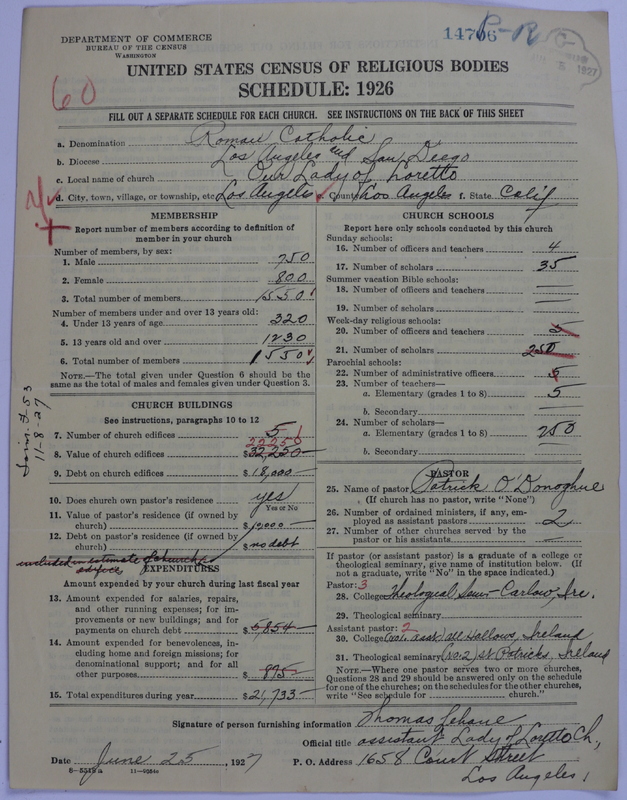 DEPARTMENT OF COMMERCE
BUREAU OF THE CENSUS
WASHINGTON
14706 R-R
1927
60
UNITED STATES CENSUS OF RELIGIOUS BODIES
SCHEDULE: 1926
FILL OUT A SEPARATE SCHEDULE FOR EACH CHURCH. SEE INSTRUCTIONS ON THE BACK OF THIS SHEET
a. Denomination Roman Catholic
b. Diocese Los Angeles and San Diego
c. Local name of church Our Lady of Loretto
d. City, town, village, or township, etc. Los Angeles County Los Angeles f. State Calif
MEMBERSHIP
Report number of members according to definition of
member in your church
Number of members, by sex:
1. Male 750
2. Female 800
3. Total number of members 1550
Number of members under and over 13 years old:
4. Under 13 years of age 320
5. 13 years old and over 1230
6. Total number of members 1550
NOTE.—The total given under Question 6 should be
same as the total of males and females given under Question 3.
11-8-27
CHURCH BUILDINGS
See instructions, paragraphs 10 to 12
7. Number of church edifices 5 1
22250
8. Value of church edifices $32,250—
9. Debt on church edifices $18,000—
10. Does church own pastor's residence yes
Yes or No
11. Value of pastor's residence (if owned by
church) $10,000—
12. Debt on pastor's residence (if owned by
church) $no debt
included in estimate of church
edifices
EXPENDITURES
Amount expended by your church during last fiscal year
13. Amount expended for salaries, repairs,
and other running expenses; for im-
provements or new buildings; and for
payments on church debt $5,854—
14. Amount expended for benevolences, in-
cluding home and foreign missions; for
denominational support; and for all
other purposes $895—
15. Total expenditures during year $21,733—
CHURCH SCHOOLS
Report here only schools conducted by this church
Sunday schools:
16. Number of officers and teachers 4
17. Number of scholars 35
Summer vacation Bible schools:
18. Number of officers and teachers —
19. Number of scholars —
Week-day religious schools:
20. Number of officers and teachers 5
21. Number of scholars 250
Parochial schools:
22. Number of administrative officers
23. Number of teachers—
a. Elementary (grades 1 to 8) 5
b. Secondary —
24. Number of scholars—
a. Elementary (grades 1 to 8) 250
b. Secondary —
PASTOR
25. Name of pastor Patrick O'Donoghue
(If church has no pastor, write "None")
26. Number of ordained ministers, if any, em-
ployed as assistant pastors 2
27. Number of other churches served by the
pastor or his assistants —
If pastor (or assistant pastor) is a graduate of a college or
theological seminary, give name of institution below. (If
not a graduate, write "No" in the space indicated.)
Pastor: 3
28. College Theological Sem- Carlow, Ire.
29. Theological seminary
Assistant pastor: 2
30. College (no1 asst) All Hallows, Ireland
31. Theological seminary (no.2) St Patricks, Ireland
NOTE.—Where one pastor serves two or more churches,
Questions 28 and 29 should be answered only on the schedule
for one of the churches; on the schedules for the other churches,
write "See schedule for church."
Signature of person furnishing information Thomas Lehane
Official title assistant Lady of Loretto Ch,
Date June 25, 1927 P. O. Address 1658 Court Street
8-5518a 11-9084a Los Angeles,